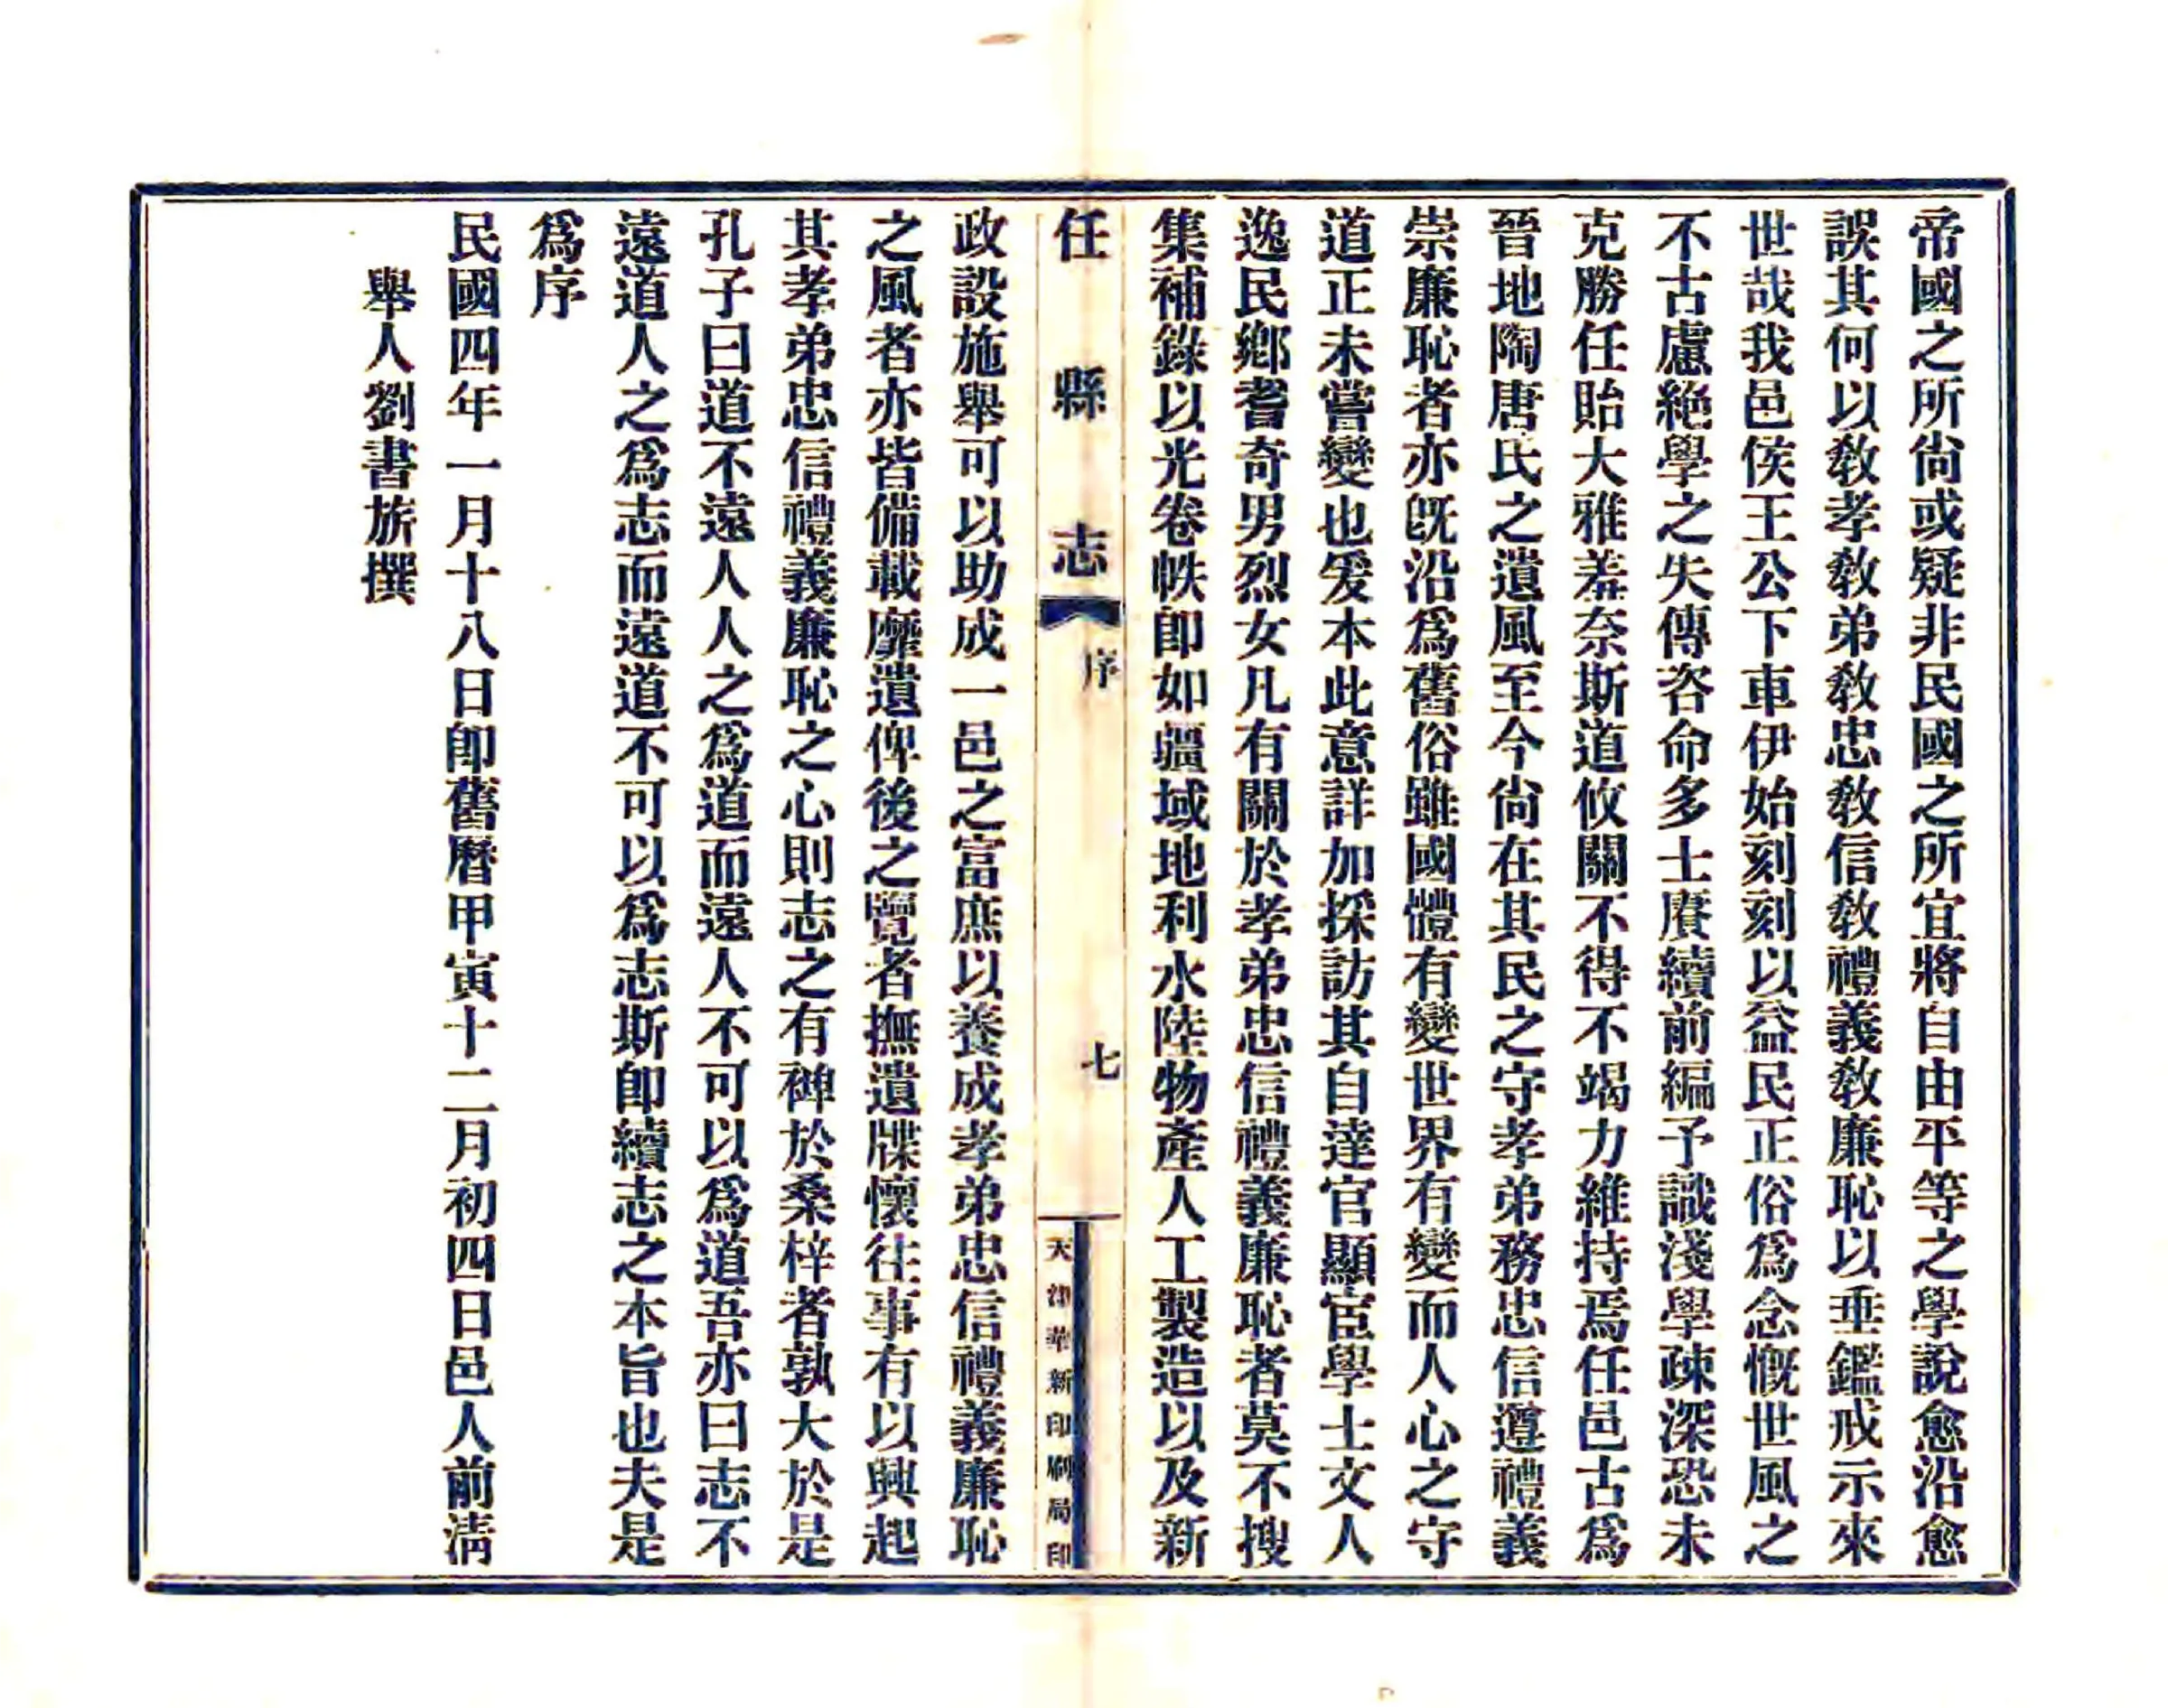 帝國之所尙或疑非民國之所宜將自由平等之學說愈沿愈
誤其何以敎孝敎弟敎忠敎信敎禮義敎廉恥以垂鑑戒示來
世哉我邑侯王公下車伊始刻刻以益民正俗爲念慨世風之
不古慮絶學之失傳咨命多士賡續前編予識淺學疎深恐未
克勝任貽大雅羞奈斯道攸關不得不竭力維持焉任邑古爲
晉地陶唐氏之遺風至今尙在其民之守孝弟務忠信遵禮義
崇廉恥者亦旣沿爲舊俗雖國體有變世界有變而人心之守
道正未嘗變也爰本此意詳加採訪其自達官顯宦學士文人
逸民鄕耆奇男烈女凡有關於孝弟忠信禮義廉恥者莫不搜
集補錄以光卷帙卽如疆域地利水陸物產人工製造以及新
任縣志 序 七 天津華新印刷局印
政設施舉可以助成一邑之富庶以養成孝弟忠信禮義廉恥
之風者亦皆備載靡遺俾後之覽者撫遺牒懷往事有以興起
其孝弟忠信禮義廉恥之心則志之有裨於桑梓者孰大於是
孔子曰道不遠人人之爲道而遠人不可以爲道吾亦曰志不
遠道人之爲志而遠道不可以爲志斯卽續志之本旨也夫是
爲序
民國四年一月十八日卽舊曆甲寅十二月初四日邑人前淸
舉人劉書旂撰